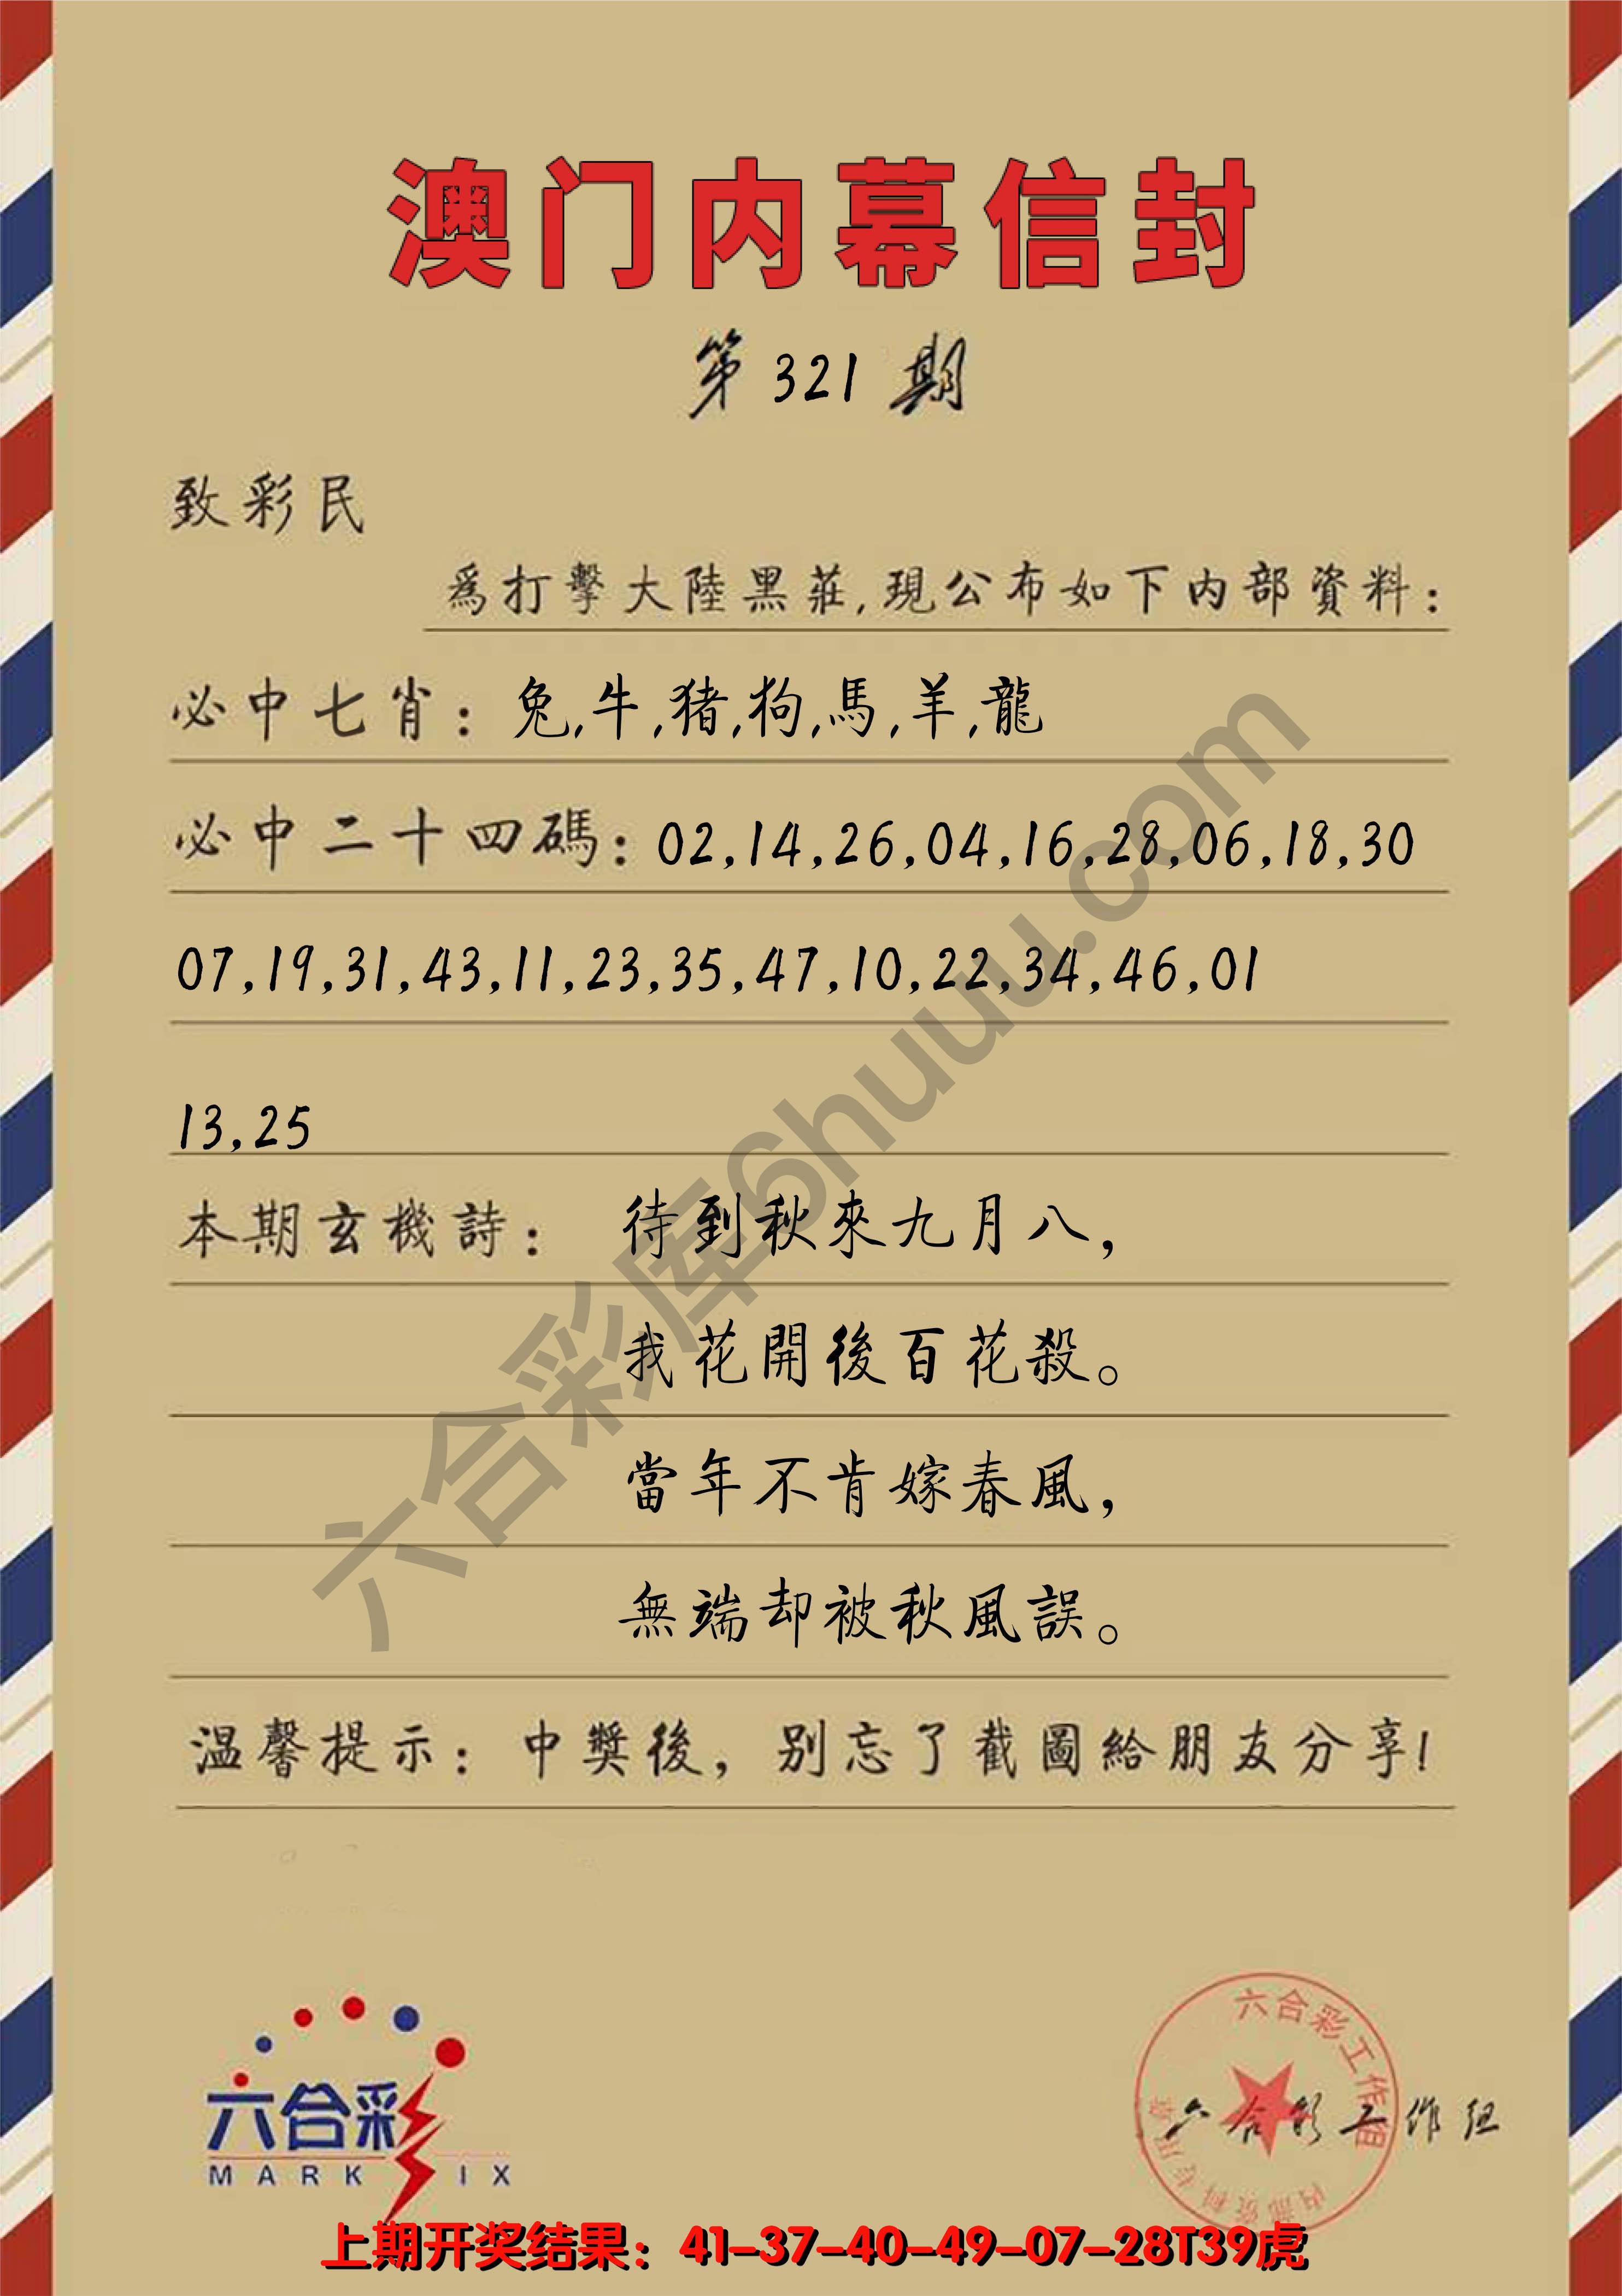 澳门内幕信封
第 321 期
致彩民
為打擊大陸黑莊,現公布如下内部資料:
必中七肖: 兔,牛,猪,狗,馬,羊,龍
必中二十四碼: 02,14,26,04,16,28,06,18,30
07,19,31,43,11,23,35,47,10,22,34,46,01
13,25
本期玄機詩: 待到秋來九月八,
我花開後百花殺。
當年不肯嫁春風,
無端却被秋風誤。
温馨提示: 中獎後, 别忘了截圖給朋友分享!
六合彩库6huuu.com
六合彩
MARK IX
六合彩工作组
内部资料专用章
六合彩工作组
上期开奖结果: 41-37-40-49-07-28T39虎